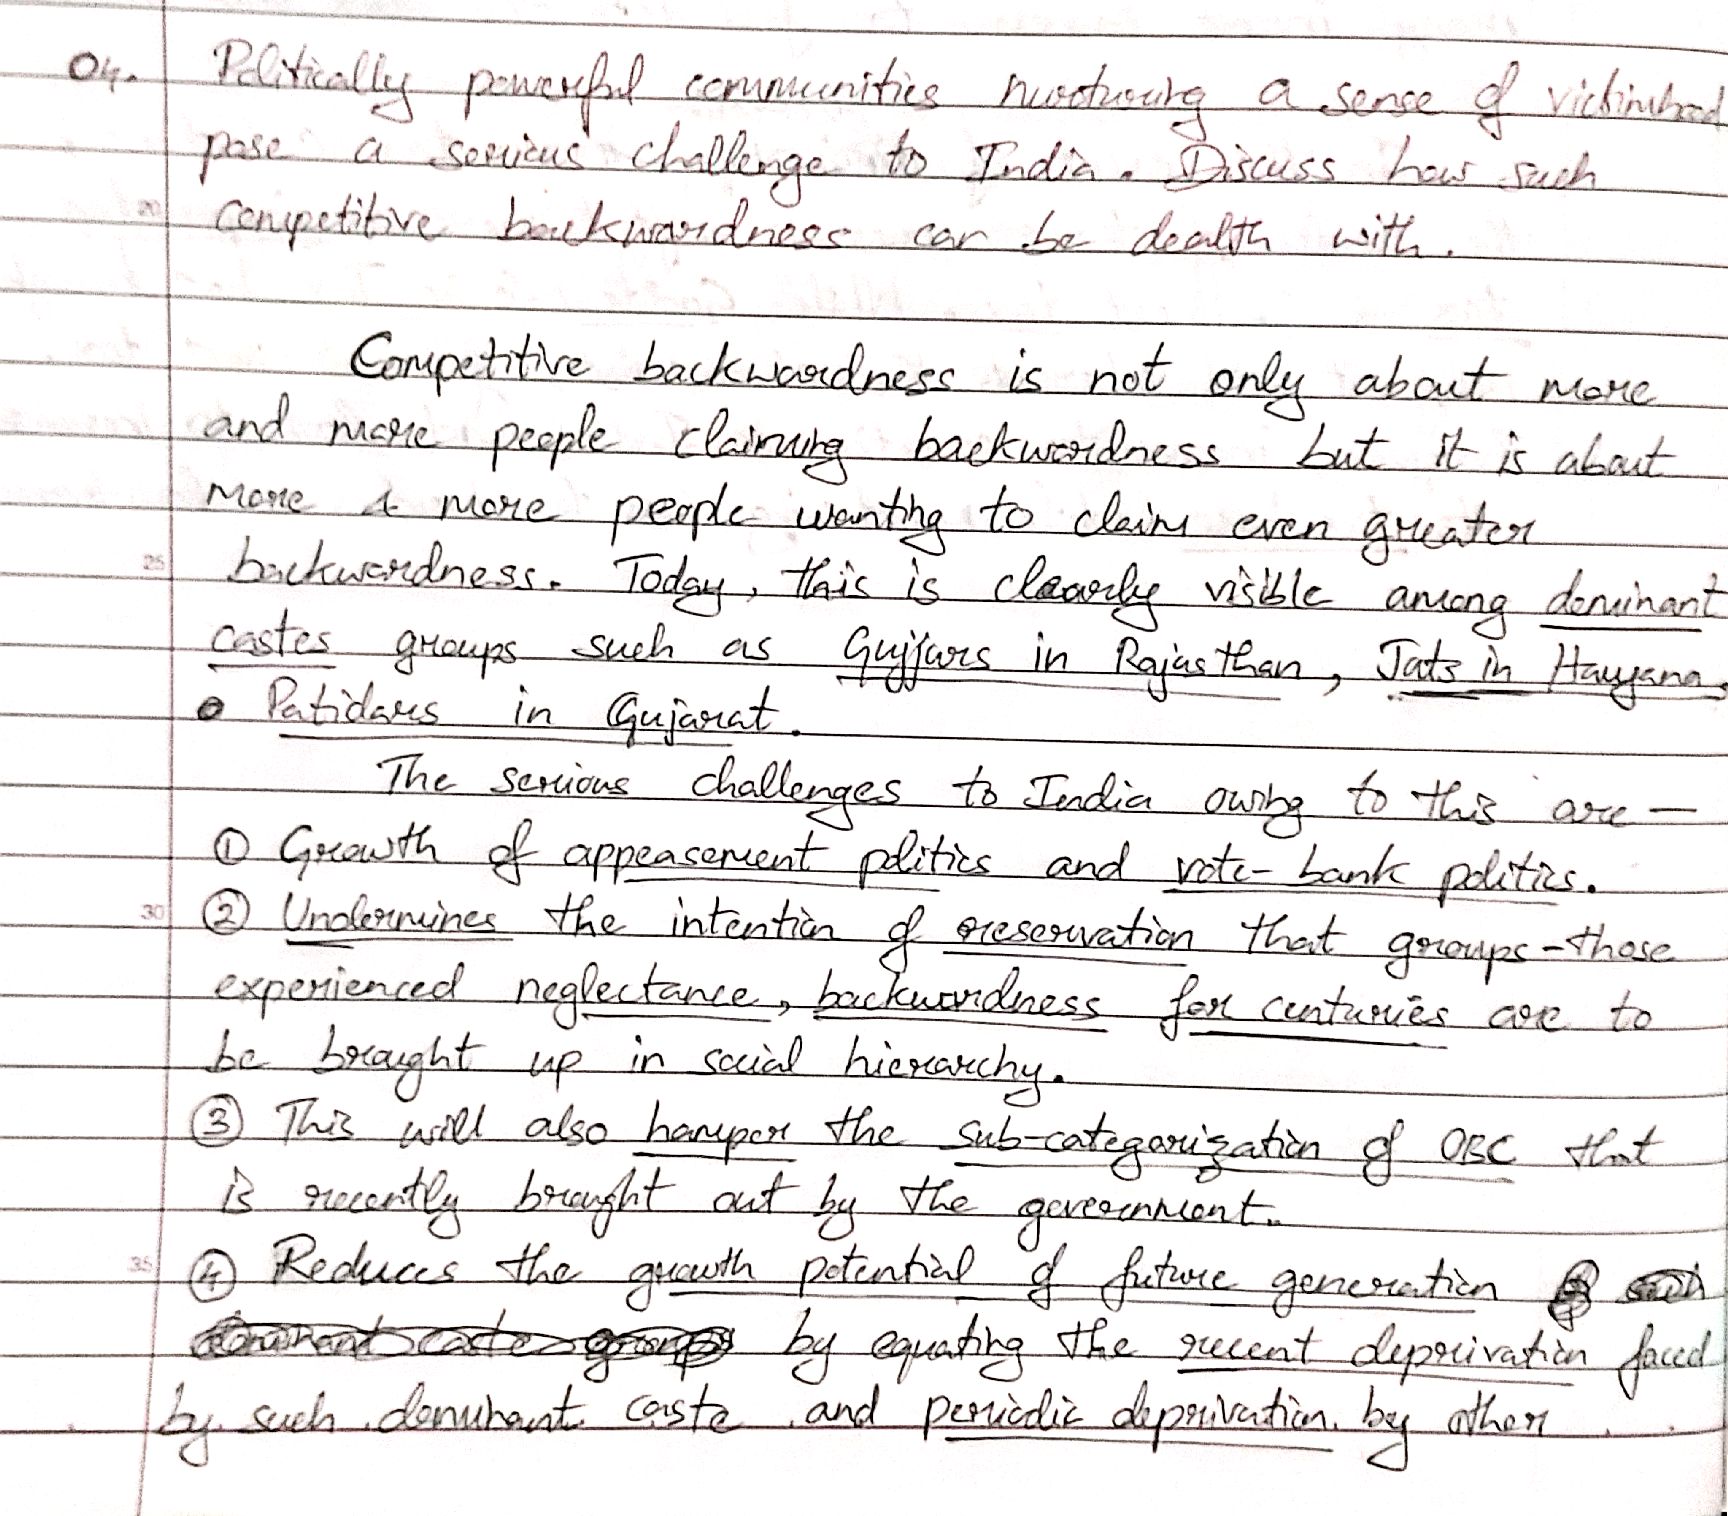 04. Politically powerful communities nurturing a sense of victimhood
pose a serious challenge to India. Discuss how such
20 competitive backwardness can be dealth with.
Competitive backwardness is not only about more
and more people claiming backwardness but it is about
more & more people wanting to claim even greater
25 backwardness. Today, this is clearly visible among dominant
castes groups such as Gujjars in Rajasthan, Jats in Haryana,
Patidars in Gujarat.
The serious challenges to India owing to this are —
① Growth of appeasement politics and vote-bank politics.
30 ② Undermines the intention of reservation that groups - those
experienced neglectance, backwardness for centuries are to
be brought up in social hierarchy.
③ This will also hamper the sub-categorization of OBC that
is recently brought out by the government.
35 ④ Reduces the growth potential of future generation
by equating the recent deprivation faced
by such dominant caste and periodic deprivation by other